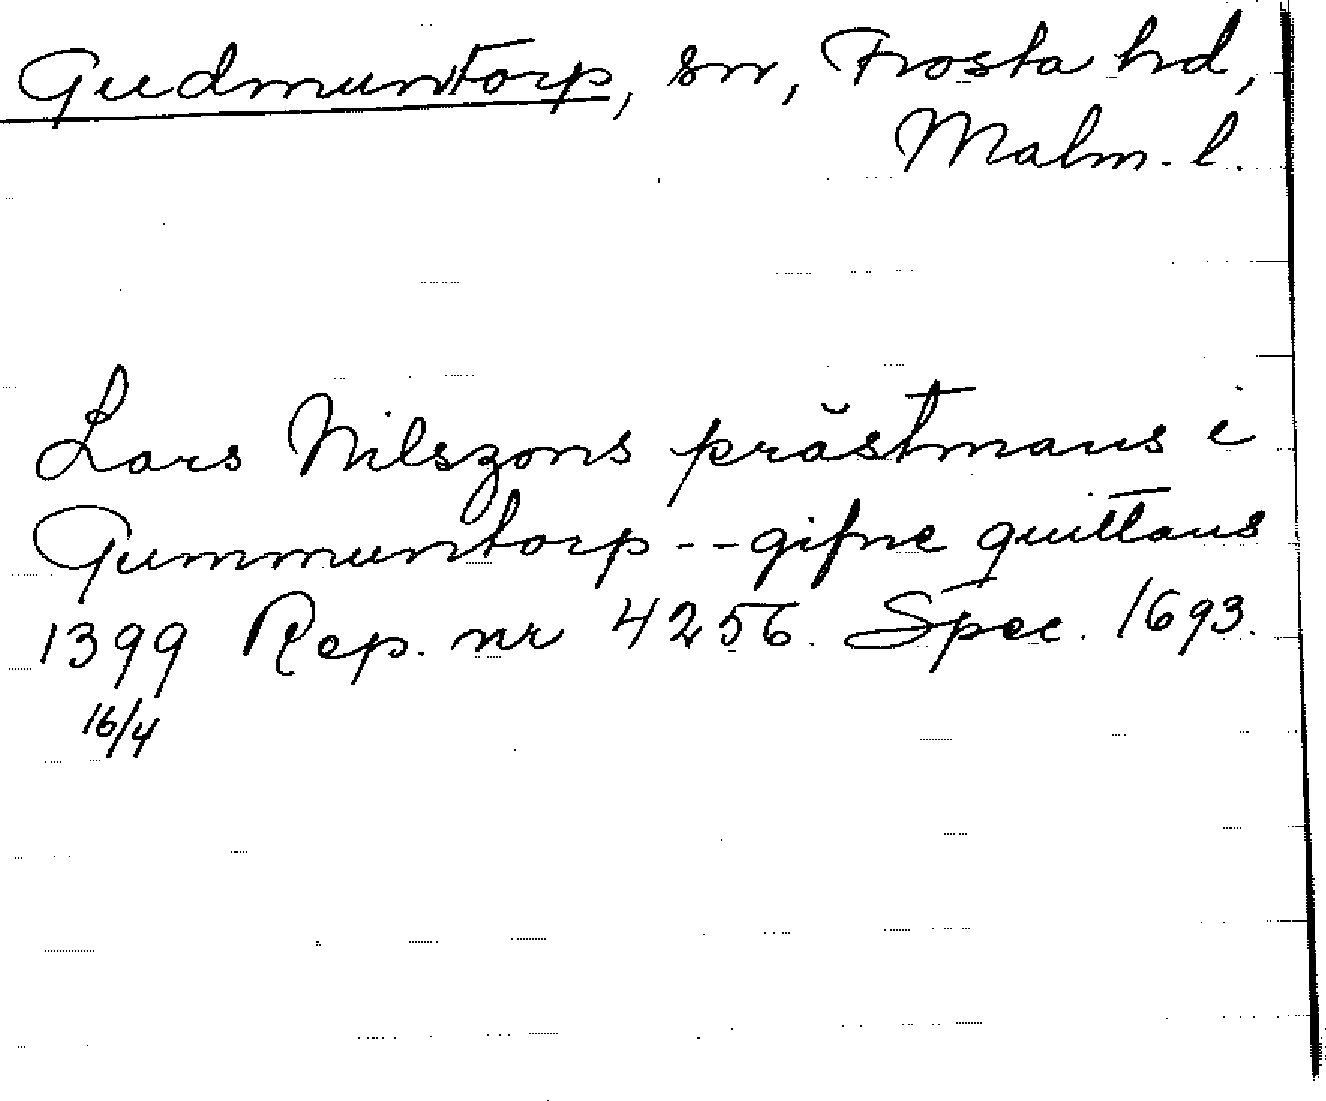 Gudmuntorp, sn, Frosta hd,
Malm. l.
Lars Nilszons prästmans i
Gummuntorp -- gifne quittans
1399 Rep. nr 4256. Spec. 1693.
16/4